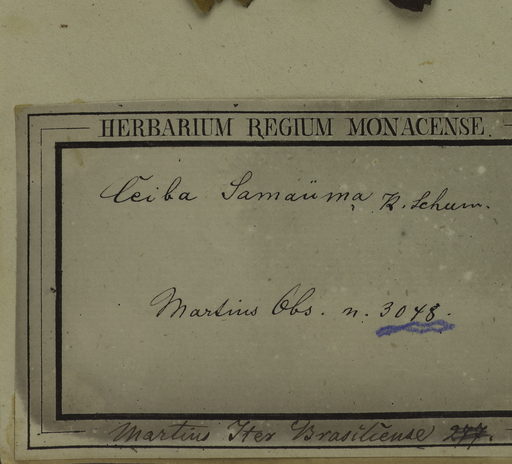 HERBARIUM REGIUM MONACENSE.
Ceiba Samaüma K. Schum.
Martius Obs. n. 3048.
Martius Iter Brasiliense